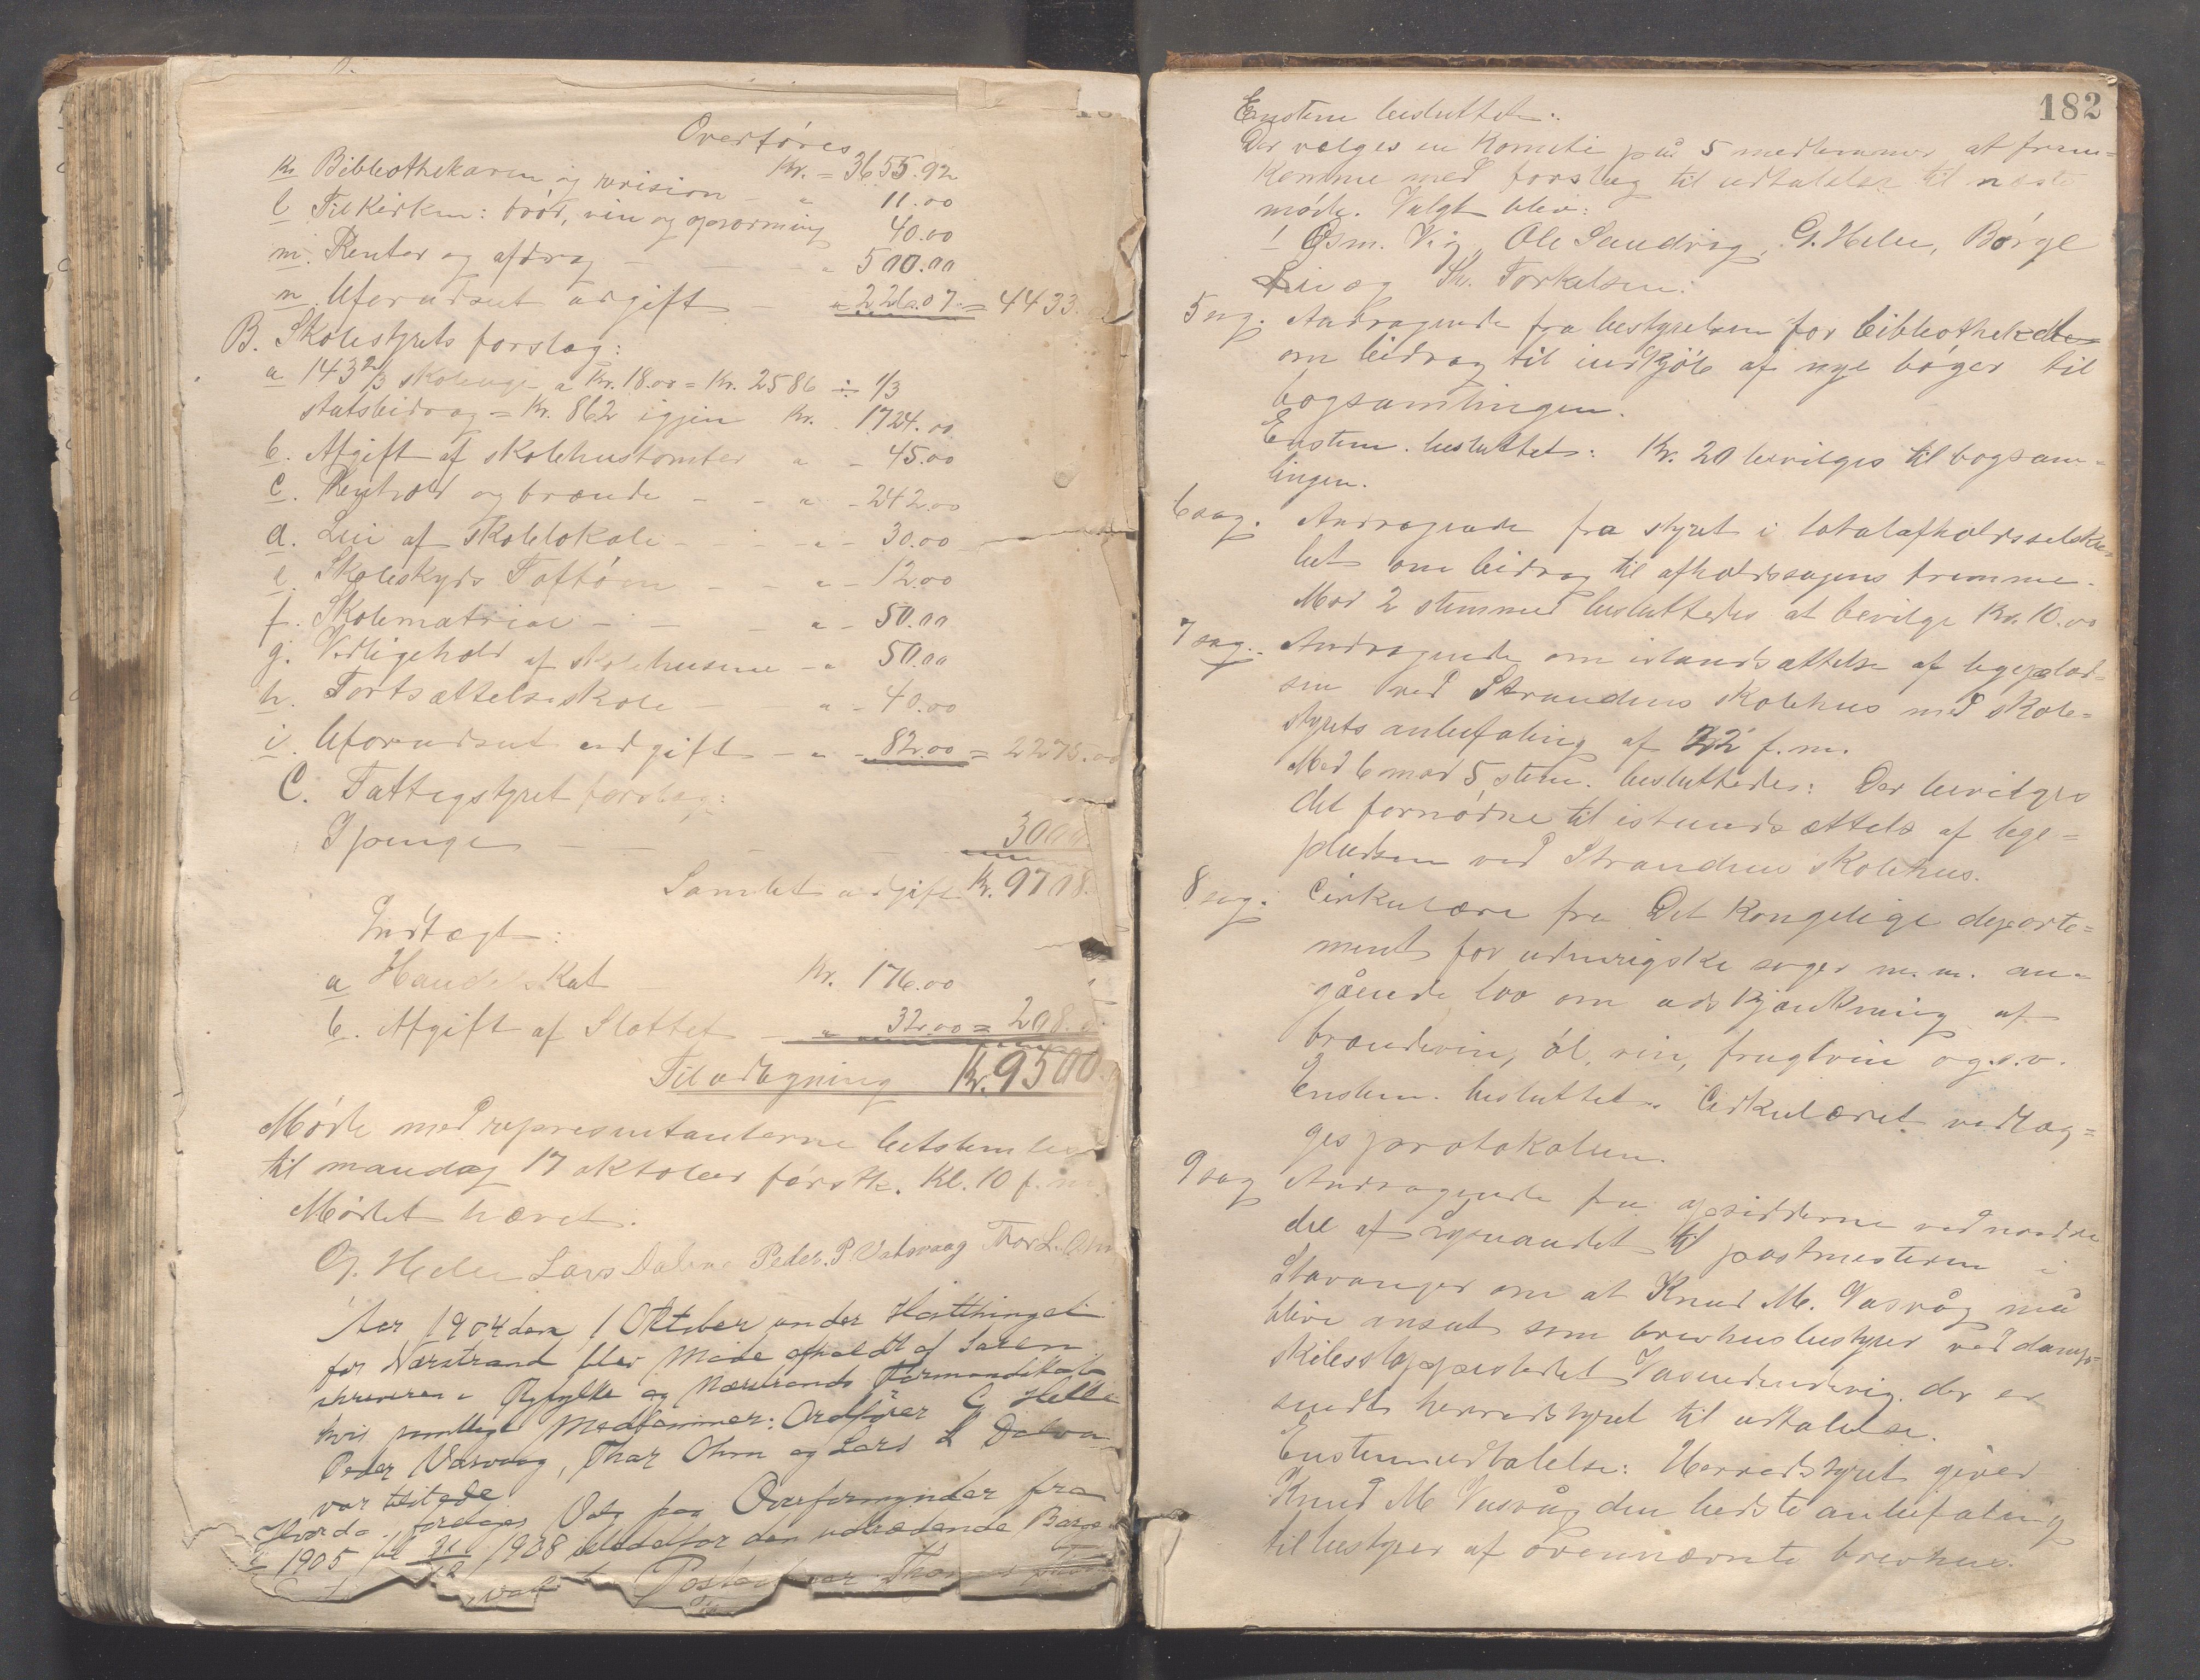 Overføres
Kr. = 3655.92
k Bibliothekaren og revision - " 11.00
l Til Kirken: brød, vin og opvarming 40.00
m. Renter og afdrag - - - " 500.00
n. Uforudseet udgift - " 226.07 = 4433.
B. Skolestyrets forslag:
a 143 2/3 skoleuge a Kr. 18.00 = Kr. 2586 ÷ 1/3
statsbidrag = Kr. 862 igjen Kr. 1724.00
b. Afgift af skolehustomter " - 45.00
c. Renhold og brænde - - " - 242.00
d. Leie af skolelokale - - - " - 30.00
e. Skoleskyds Toftøen - - " - 12.00
f. Skolematriel - - - " - 50.00
g. Vedligehold af skolehusene - " 50.00
h. Fortsættelsesskole - - " - 40.00
i. Uforudseet udgift - " - 82.00 = 2275.00
C. Fattigstyret forslag:
I penge - - - - 3000
Samlet udgift Kr. 9708.
Indtægt:
a Handelsskat Kr. 176.00
b. Afgift af Slottet - " 32.00 = 208.
Til udligning Kr. 9500
Møde med repræsentanterne betstemtes
til mandag 17 oktober førstk. Kl. 10 f.m.
Mødet hævet.
G. Helle Lars Dalva Peder. P Vatsvaag Thor L. Ohm
Aar 1904 den 1 Oktober under Hosttinget
for Nærstrand blev Møde afholdt af Soren
skriveren i Ryfylke og Nærstrands Formandskab
hvis samtlige Medlemmer: Ordfører G Helle
Peder Vasvaag, Thor Ohm og Lars L Dalva
var tilstede
Hvorda foretoges Valg paa Overformynder fra
1 1905 til 31/12 1908 istedetfor den udtrædende Børge
Valgt Thor
182
Enstem besluttet:
Der vælges en Komite på 5 medlemmer at frem=
komme med forslag til udtalelse til næste
møde. Valgt blev:
1 Osm. Vig, Ole Sandvig, G. Helle, Børge
Lie og Th. Torkelsen.
5 sag. Andragende fra bestyrelsen for bibliotheket
om bidrag til indkjøb af nye bøger til
bogsamlingen.
Enstem. besluttet: Kr. 20 bevilges til bogsam=
lingen.
6 sag. Andragende fra styret i totalafholdsselska=
bet om bidrag til afholdssagens fremme.
Mod 2 stemmer besluttedes at bevilge Kr. 10.00
7 sag. Andragende om istandsættelse af legeplad=
sen ved Strandens skolehus med skole=
styrets anbefaling af 22' f.m.
Med 6 mod 5 stem. besluttedes: Der bevilges
det fornødne til istandsættelse af lege=
pladsen ved Strandens skolehus.
8 sag. Cirkulære fra Det Kongelige departe=
ment for udenrigske sager m.m. an=
gående lov om udskjænkning af
brændevin, øl, vin, frugtvin og.s.v.
Enstem. besluttet. Cirkulæret vedlæg=
ges protokolen.
9 sag Andragende fra opsidderne ved nordre
del af sognandet til postmesteren i
Stavanger om at Knud M. Vasvåg må
blive ansat som brevhusbestyrer ved damp=
skibsstoppestedet Vasendenvig der er
sendt herredstyret til udtalelse.
Enstem udtalelse: Herredstyret giver
Knud M Vasvåg den bedste anbefaling
til bestyrer af ovennævnte brevhus.